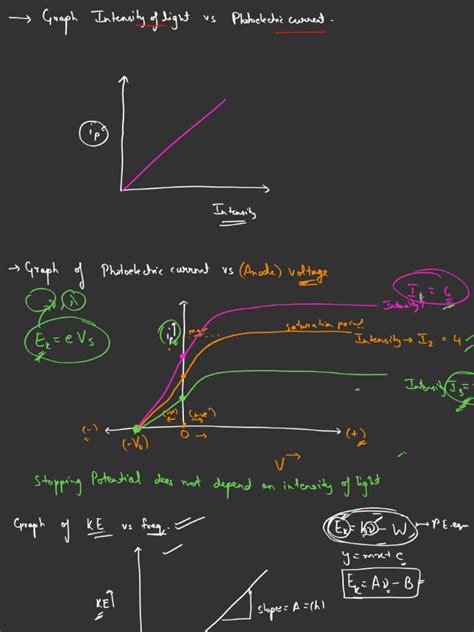 → Graph Intensity of light vs Photoelectric current.
ip
Intensity
→ Graph of Photoelectric current vs (Anode) Voltage
I1 = 6
Intensity
Ek = eVs
saturation point
Intensity → I2 = 4
Intensity I3 =
(-)
(-V0)
0
(+ve)
(+)
V →
Stopping Potential does not depend on intensity of light
Graph of KE vs freq.
Ek = hν - W → P.E. eqn
y = mx + c
Ek = Aν - B
KE↑
slope = A = (h)